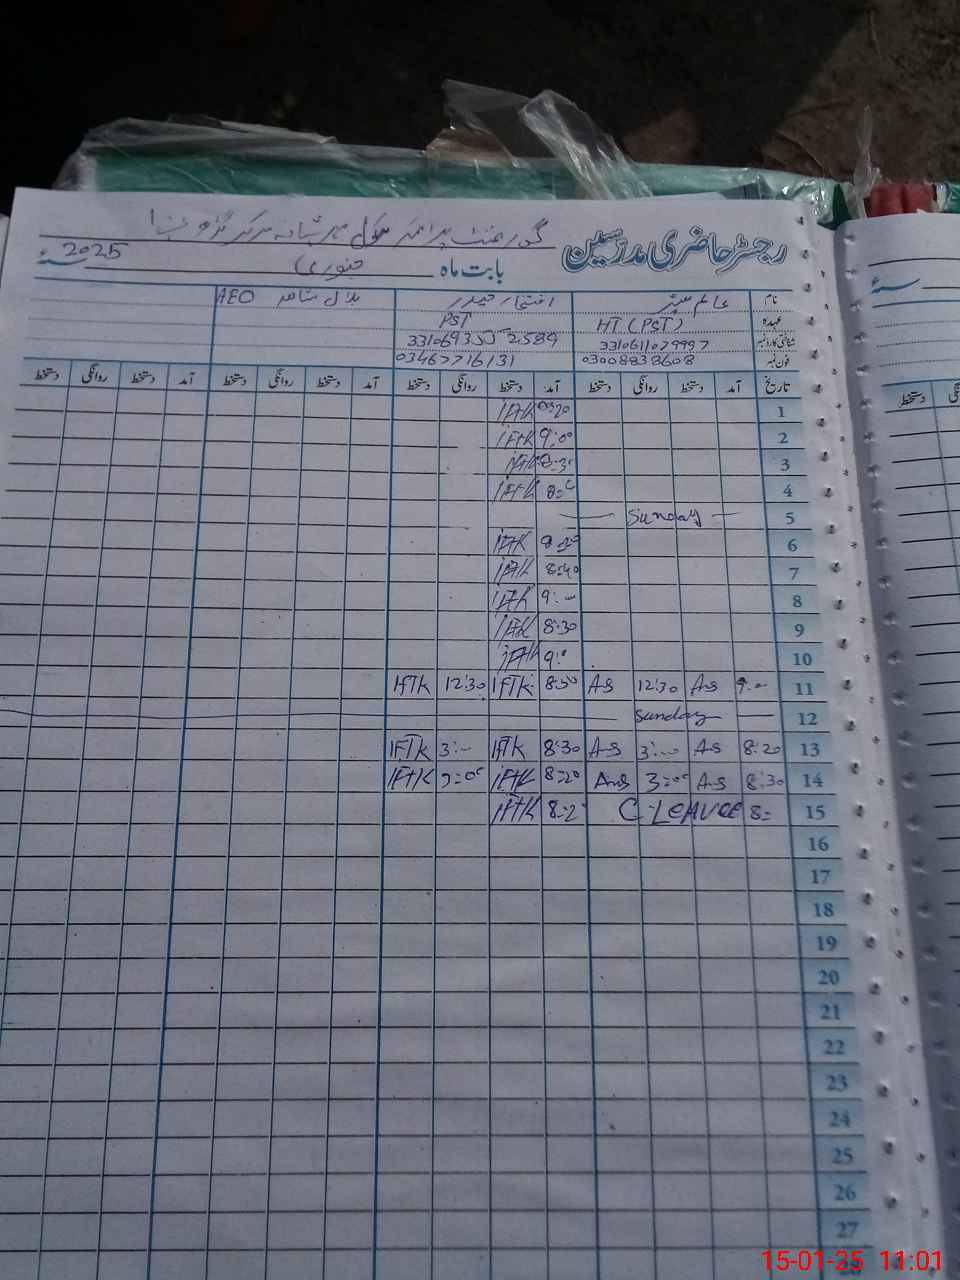 گورنمنٹ پرائمری سکول
رجسٹر حاضری مدرسین
بابت ماہ جنوری 2025
نام عالم شیر افتخار حیدر بلال شاہد AEO
عہدہ HT (PST) PST
شناختی کارڈ نمبر 3310611079997
فون نمبر 03008838608 03467716131
تاریخ آمد دستخط روانگی دستخط آمد دستخط روانگی دستخط آمد دستخط روانگی دستخط آمد دستخط روانگی دستخط
1 8:20 IFtK
2 9:00 IFtK
3 IFtK
4 IFtK
5 Sunday
6 IFtK
7 8:40 IFtK
8 9:00 IFtK
9 8:30 IFtK
10 9:0 IFtK
11 9:00 Ans 12:30 Ans 8:50 IFTK 12:30 IFTK
12 Sunday
13 8:20 Ans 3:00 Ans 8:30 IFTK 3:00 IFTK
14 8:30 Ans 3:00 Ans 8:20 IFtK IFtK
15 C-LEAVCE 8:2 IFtK
16
17
18
19
20
21
22
23
24
25
26
27
15-01-25 11:01